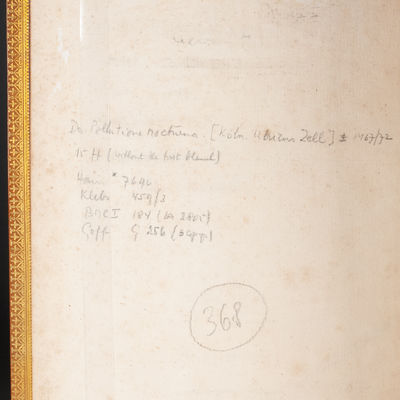 De Pollutione nocturna. [Köln. Ulricus Zell] ± 1467/72
15 ff (without the first blank)
Hain * 7694
Klebs 459/3
BMC I 184 (IA 2805)
Goff G 256 (3 copies)
368